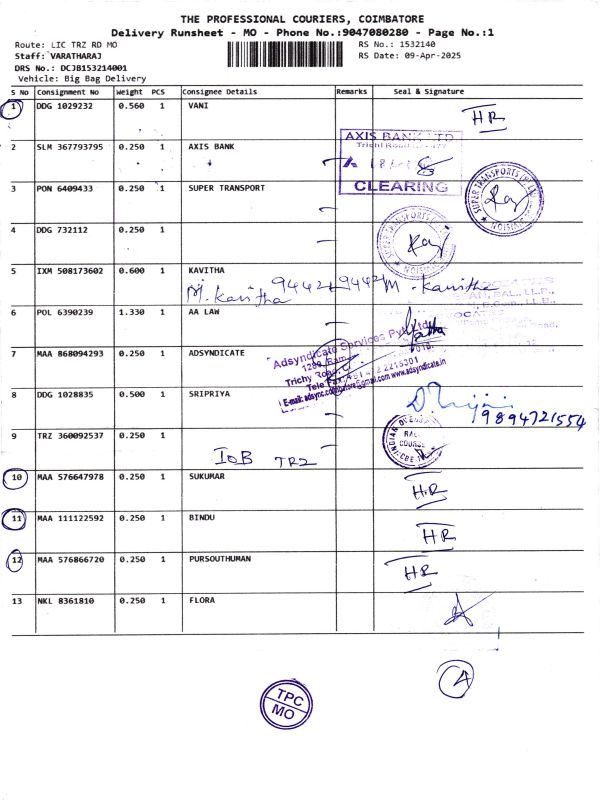 THE PROFESSIONAL COURIERS, COIMBATORE
Delivery Runsheet - MO - Phone No.:9047080280 - Page No.:1
Route: LIC TRZ RD MO
RS No.: 1532140
Staff: VARATHARAJ
RS Date: 09-Apr-2025
DRS No.: DCJB153214001
Vehicle: Big Bag Delivery
S No Consignment No Weight PCS Consignee Details Remarks Seal & Signature
1 DDG 1029232 0.560 1 VANI HR
2 SLM 367793795 0.250 1 AXIS BANK
AXIS BANK LTD
CLEARING
3 PON 6409433 0.250 1 SUPER TRANSPORT
4 DDG 732112 0.250 1
5 IXM 508173602 0.600 1 KAVITHA
M. Kavitha 94424 9442 M. Kavitha
6 POL 6390239 1.330 1 AA LAW
7 MAA 868094293 0.250 1 ADSYNDICATE
Adsyndicate Services Pvt Ltd
Trichy Road
8 DDG 1028835 0.500 1 SRIPRIYA
9894721554
9 TRZ 360092537 0.250 1
IOB TRZ
10 MAA 576647978 0.250 1 SUKUMAR HR
11 MAA 111122592 0.250 1 BINDU HR
12 MAA 576866720 0.250 1 PURSOUTHUMAN HR
13 NKL 8361810 0.250 1 FLORA
4
TPC
MO